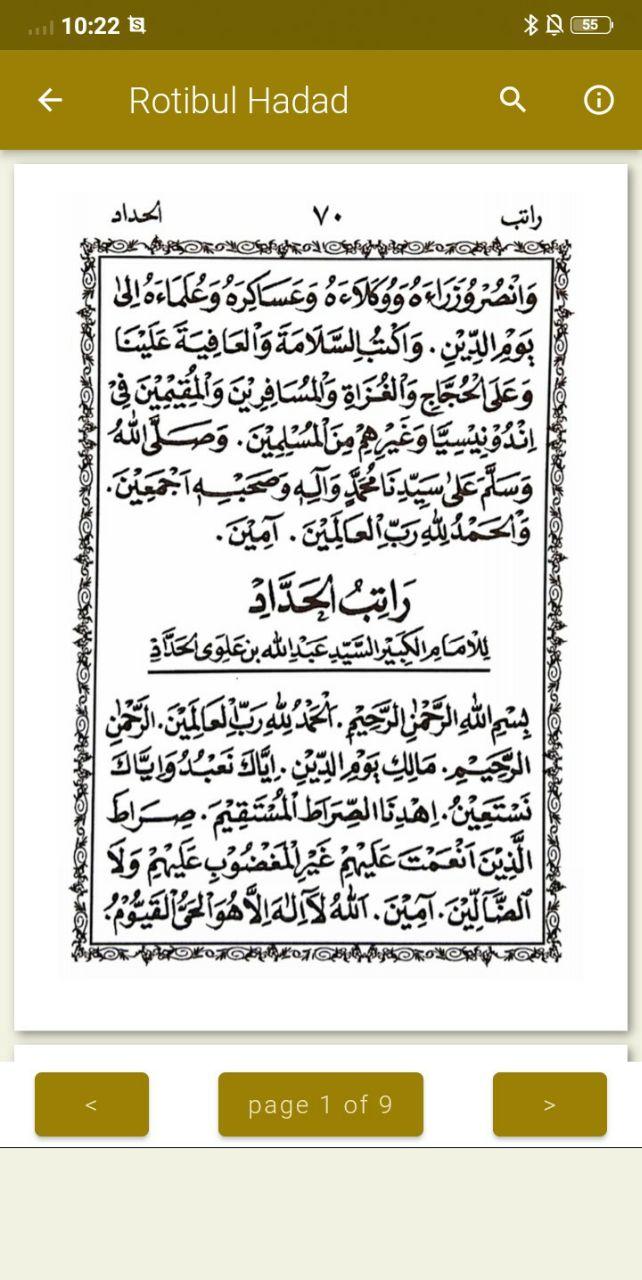 10:22
55
Rotibul Hadad
راتب ٧٠ الحداد
وَانْصُرْ وُزَرَاءَهُ وَوُكَلَاءَهُ وَعَسَاكِرَهُ وَعُلَمَاءَهُ اِلىٰ
يَوْمِ الدِّيْنِ . وَاكْتُبِ السَّلَامَةَ وَالْعَافِيَةَ عَلَيْنَا
وَعَلَى الْحُجَّاجِ وَالْغُزَاةِ وَالْمُسَافِرِيْنَ وَالْمُقِيْمِيْنَ فِيْ
اِنْدُوْنِيْسِيَّا وَغَيْرِهِمْ مِنَ الْمُسْلِمِيْنَ . وَصَلَّى اللهُ
وَسَلَّمَ عَلىٰ سَيِّدِنَا مُحَمَّدٍ وَآلِهِ وَصَحْبِهِ اَجْمَعِيْنَ .
وَالْحَمْدُ لِلّٰهِ رَبِّ الْعَالَمِيْنَ . آمِيْنَ .
رَاتِبُ الْحَدَّادِ
لِلْاِمَامِ الْكَبِيْرِ السَّيِّدِ عَبْدِ اللهِ بْنِ عَلَوِى الْحَدَّادِ
بِسْمِ اللهِ الرَّحْمٰنِ الرَّحِيْمِ . اَلْحَمْدُ لِلّٰهِ رَبِّ الْعَالَمِيْنَ . الرَّحْمٰنِ
الرَّحِيْمِ . مَالِكِ يَوْمِ الدِّيْنِ . اِيَّاكَ نَعْبُدُ وَاِيَّاكَ
نَسْتَعِيْنُ . اِهْدِنَا الصِّرَاطَ الْمُسْتَقِيْمَ . صِرَاطَ
الَّذِيْنَ اَنْعَمْتَ عَلَيْهِمْ غَيْرِ الْمَغْضُوْبِ عَلَيْهِمْ وَلَا
الضَّآلِّيْنَ . آمِيْنَ . اَللهُ لَآ اِلٰهَ اِلَّا هُوَ الْحَيُّ الْقَيُّوْمُ :
< page 1 of 9 >